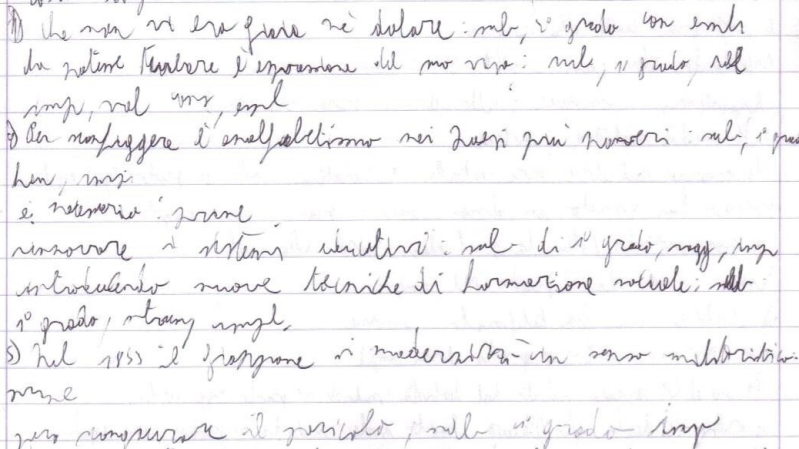 che non vi era gioia né dolore: sub, 2° grado con
da potesse turbare l'espressione del suo viso: sub, 1° grado, rel
imp, vol
Per sconfiggere l'analfabetismo nei paesi più poveri: sub, 1° grado
imp
è necessario: princ
rinnovare i sistemi educativi: sub di 1° grado, sogg, imp
introducendo nuove tecniche di formazione sociale: sub
1° grado, strum, impl.
5) Nel 1853 il Giappone si modernizzò in senso militaristico:
princ
per scongiurare il pericolo, sub 1° grado imp